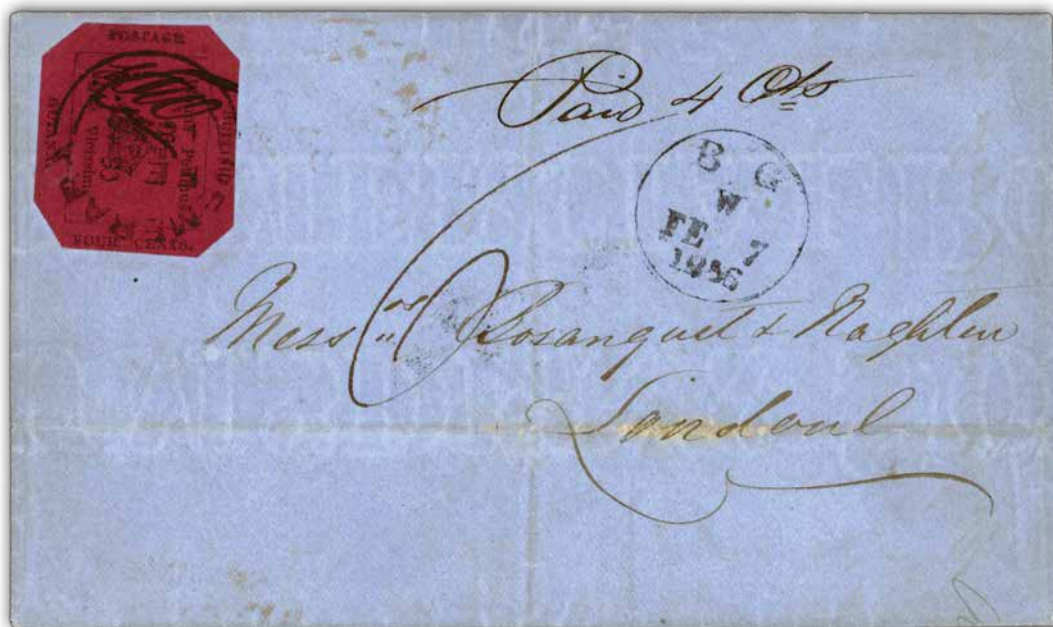 POSTAGE
BRITISH
GUIANA
FOUR CENTS.
Paid 4 Cts
B G
W
FE 7
1856
Messrs Bosanquet & Naghten
London